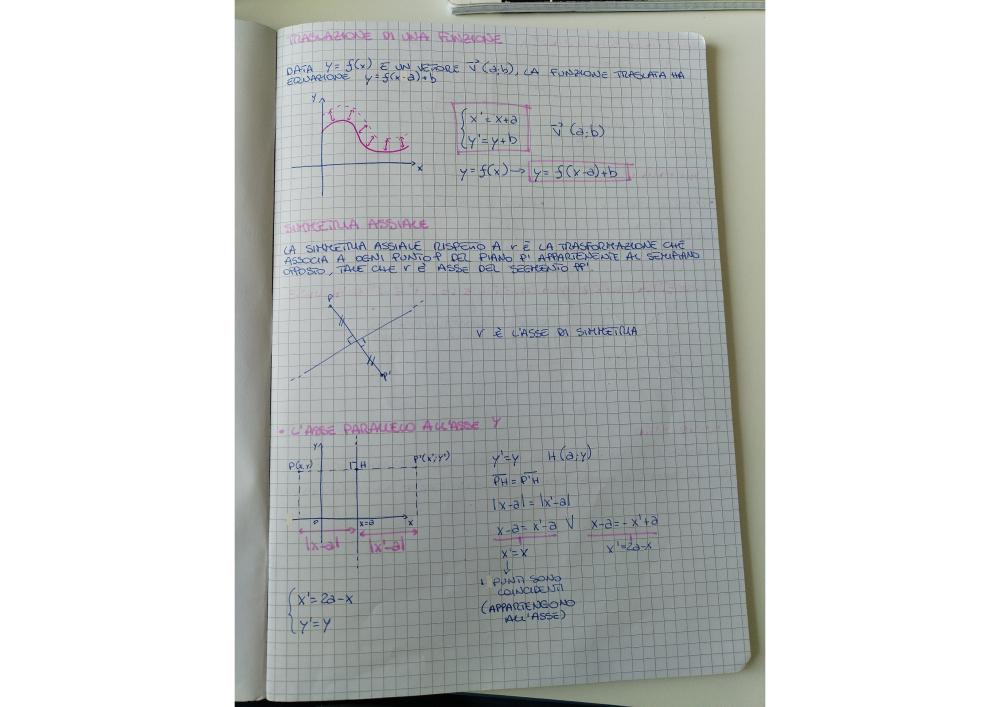 TRASLAZIONE DI UNA FUNZIONE
DATA y = f(x) E UN VETTORE v⃗ (a;b), LA FUNZIONE TRASLATA HA
EQUAZIONE y = f(x-a)+b
y
x
{ x' = x+a
{ y' = y+b
v⃗ (a;b)
y = f(x) → y = f(x-a)+b
SIMMETRIA ASSIALE
LA SIMMETRIA ASSIALE RISPETTO A r È LA TRASFORMAZIONE CHE
ASSOCIA A OGNI PUNTO P DEL PIANO P' APPARTENENTE AL SEMIPIANO
OPPOSTO, TALE CHE r È ASSE DEL SEGMENTO PP'.
P
P'
r È L'ASSE DI SIMMETRIA
• L'ASSE PARALLELO ALL'ASSE Y
y
P(x;y)
H
P'(x';y')
x=a
x
|x-a|
|x'-a|
y'=y H(a;y)
PH = P'H
|x-a| = |x'-a|
x-a = x'-a V x-a = -x'+a
x' = x
x' = 2a-x
↓
I PUNTI SONO
COINCIDENTI
(APPARTENGONO
ALL'ASSE)
{ x' = 2a-x
{ y' = y